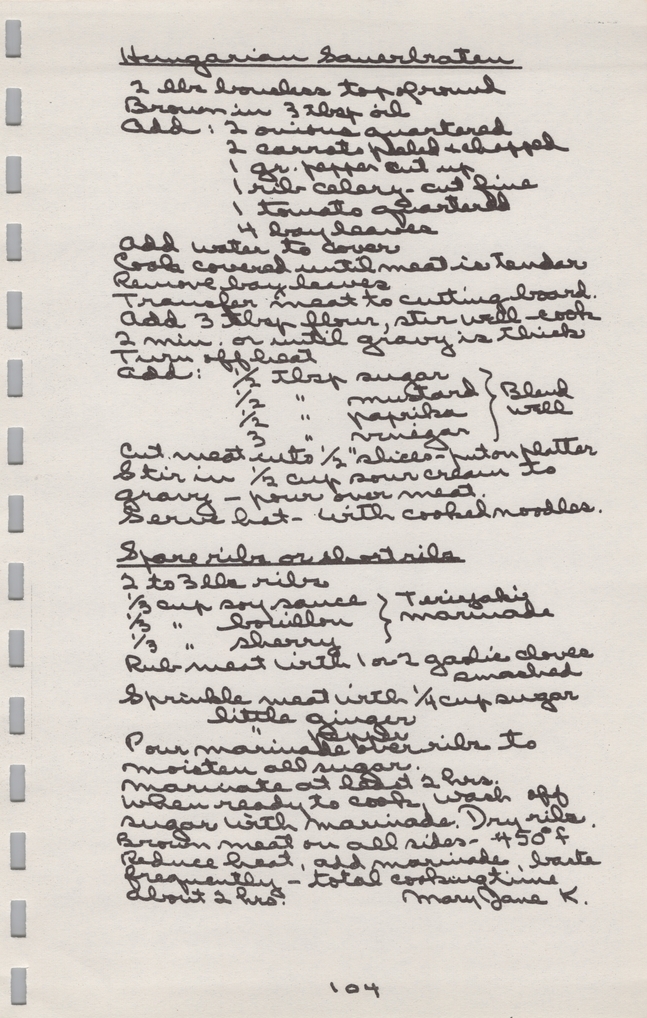 Hungarian Sauerbraten
2 lbs boneless top ground
Brown in 3 tbsp oil
Add: 2 onions quartered
2 carrots peeled & chopped
1 gr. pepper cut up
1 rib celery - cut fine
1 tomato quartered
4 bay leaves
Add water to cover
Cook covered until meat is tender
Remove bay leaves
Transfer meat to cutting board.
Add 3 tbsp flour, stir well - cook
2 min. or until gravy is thick
Turn off heat
Add: 1/2 tbsp sugar
1/2 " mustard } Blend
1/2 " paprika } well
3 " vinegar
Cut meat into 1/2" slices - put on platter
Stir in 1/2 cup sour cream to
gravy - pour over meat.
Serve hot - with cooked noodles.
Spare ribs or short ribs
2 to 3 lbs ribs
1/3 cup soy sauce } Teriyaki
1/3 " bouillon } marinade
1/3 " sherry
Rub meat with 1 or 2 garlic cloves
smashed
Sprinkle meat with 1/4 cup sugar
little ginger
" pepper
Pour marinade over ribs to
moisten all sugar.
Marinate at least 2 hrs.
When ready to cook, wash off
sugar with marinade. Dry ribs.
Brown meat on all sides - 450° F
Reduce heat, add marinade, baste
frequently - total cooking time
about 2 hrs.
Mary Jane K.
104